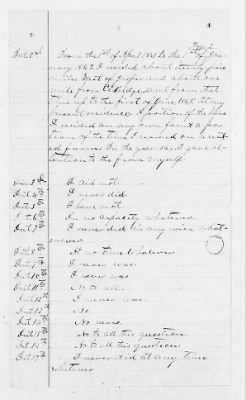 Page 2
Int 2nd From the 1st of April 1861 to the 1st of Jan
uary 1862 I resided about twenty five
miles West of Jasper and about one
mile from Eldridge and from that
time up to the first of June 1865 at my
present residence. A portion of the time
I resided on my own farm & a por
tion of the time I resided on a rent
ed farm. In the year 1865 I gave at
tention to the farm myself.
Int 3rd I did not.
Int 4th I never did.
Int 5th I have not.
Int 6th In no capacity whatever
Int 7th I never did in any wise what
soever.
Int 8th At no time whatever
Int 9th I never was.
Int 10th I never was.
Int 11th No to all.
Int 12th I never was.
Int 13th No.
Int 14th No never.
Int 15th No to all this question.
Int 16th No to all this question.
Int 17th I never did at any time
whatever